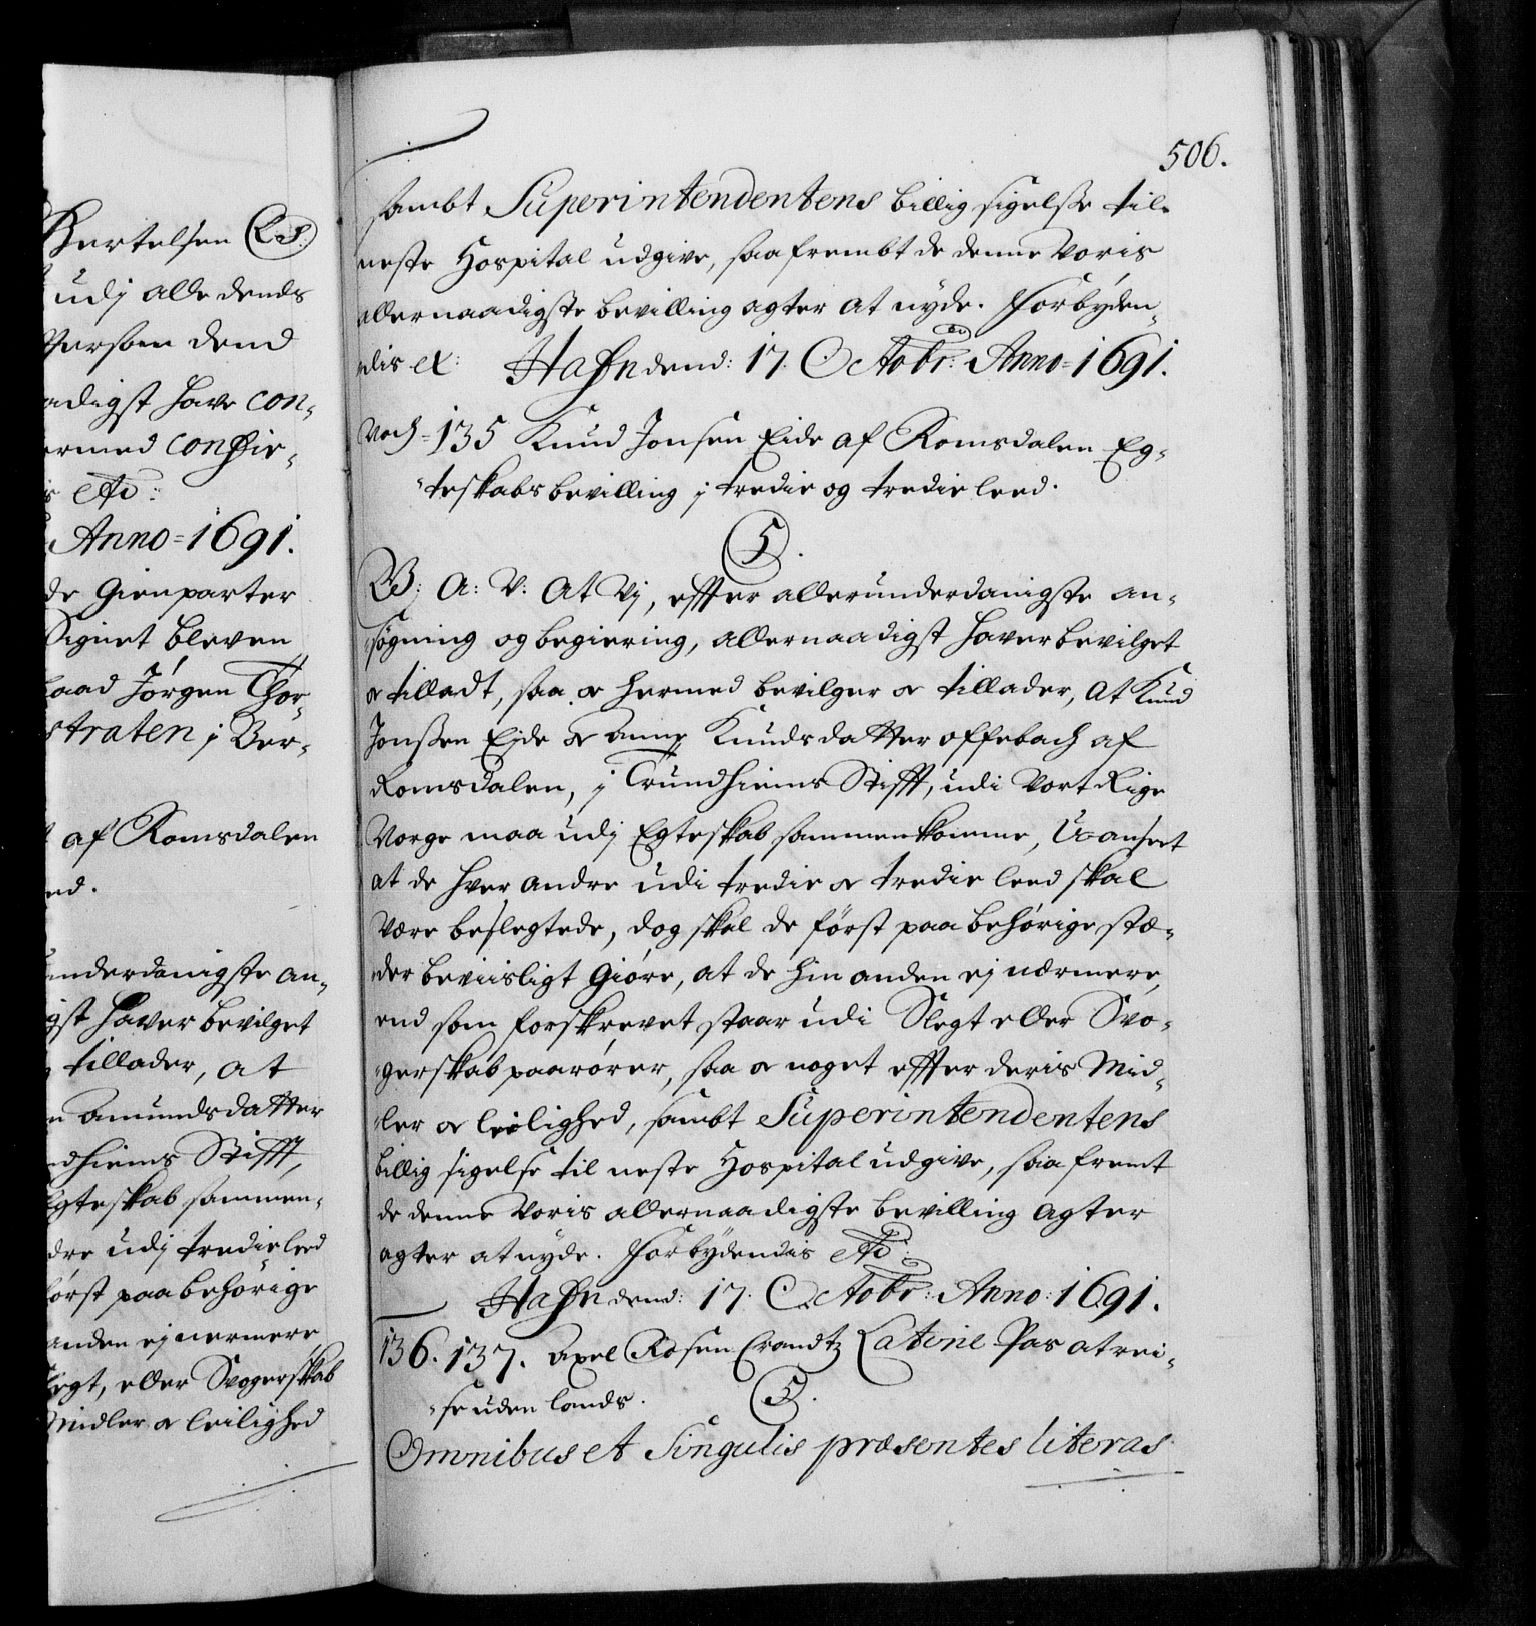 Bertelsen
udj alle dends
Person dend
adigst have con-
ermed confir-
is etc:
Anno=1691.
de Gienparter
Signet bleven
Jørgen Thor-
straten j Ber-
af Romsdalen
ed.
underdanigste an-
gst haver bevilget
tillader, at
Amundsdatter
dhiems Stifft,
Egteskab sammen-
dre udj tredie leed
først paa behørige
anden ej nermere
legt, eller Svogerskab
Midler oc leilighed
506.
sambt Superintendentens billig sigelsse til
neste Hospital udgive, saafrembt de denne voris
allernaadigste bevilling agter at nyde. Forbyden-
dis etc: Hafn dend: 17. Octobr: Anno=1691.
Noch=135 Knud Jonsen Eide af Romsdalen Eg-
teskabs bevilling j tredie og tredie leed.
5.
V: A: V: At Vj, effter allerunderdanigste an-
søgning og begiering, allernaadigst haver bevilget
oc tilladt, saa oc hermed bevilger oc tillader, at Knud
Jonssen Eide oc Anne Knudsdatter offebach af
Romsdalen, j Trundhiems Stifft, udi Vort Rige
Norge maa udj Egteskab sammenkomme, Uanseet
at de hver andre udi tredie oc tredie leed skal
være beslegtede, dog skal de først paa behørige stæ-
der beviisligt Giøre, at de hin anden ej nærmere,
end som forskrevet staar udi Slegt eller Svo-
gerskab paarører, saa oc noget effter deris Mid-
ler oc leilighed, sambt Superintendentens
billig sigelse til neste Hospital udgive, saa fremt
de denne Voris allernaadigste bevilling agter
agter at nyde. Forbydendis etc:
Hafn dend: 17: Octobr: Anno: 1691.
136. 137. Axel Rosen Crandtz Latine Pas at rei-
se uden lands. 5.
Omnibus et Singulis præsentes literas